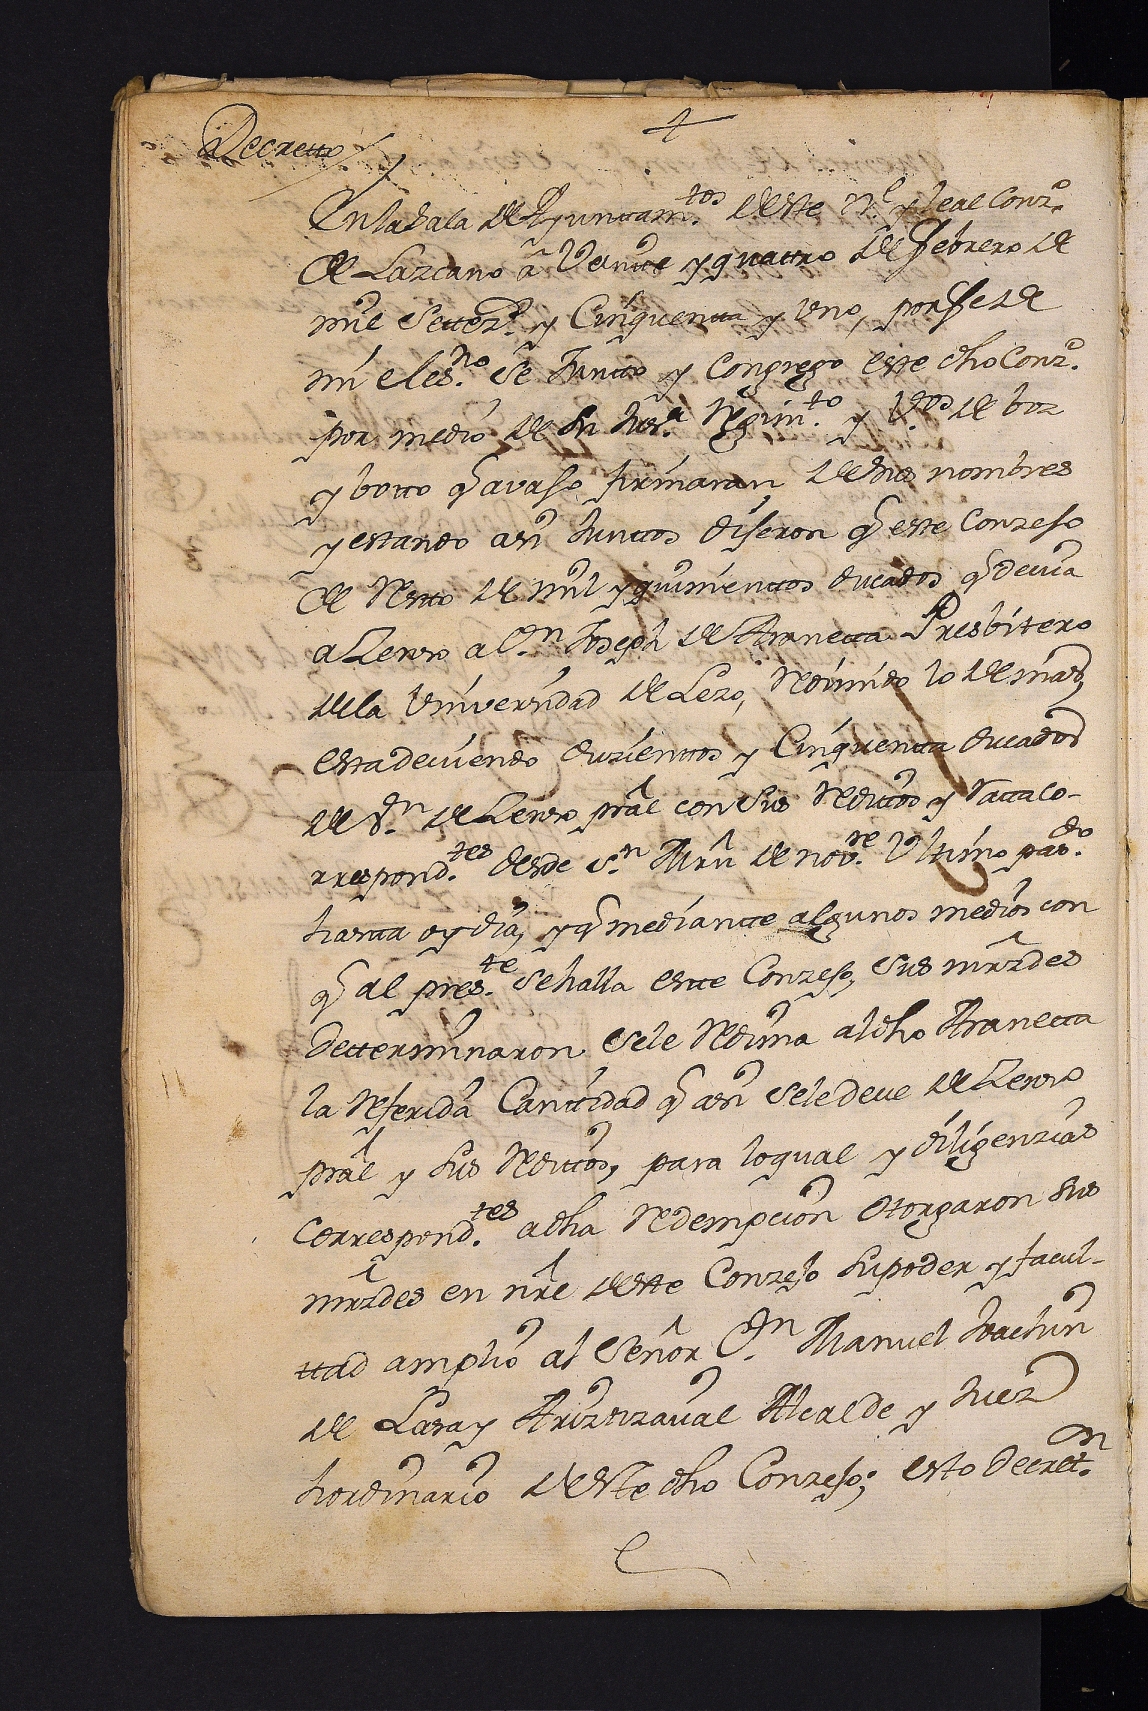 Decretto
En la sala de Ayunttam.tos de este N.e y leal Conz.o
de Lazcano â Veintte y quattro de Febrero de
mil Settez.s y Cinquentta y Uno, por fe de
mi el es.no Se Juntto y Congrego este dho Conz.o
por medio de su Jus.a Rejim.to y V.os de boz
y botto q avajo firmaran de sus nombres
y estando asi Junttos dijeron q este Conzejo
de Restto de mil y quinienttos ducados q devia
a Zenso a D.n Joseph de Aranetta Presbitero
de la Universidad de Lezo, Redimido lo de mas,
esta deviendo duzienttos y Cinquentta ducados
de v.n de Zenso prâl con sus Reditos y Ratta co-
rrespond.tes desde S.n Mrñ de nov.re Ultimo pas.do
hastta oy dia, y q mediantte algunos medios con
q al pres.te Se halla estte Conzejo, Sus mrzdes
Detterminaron Se le Redima al dho Aranetta
la Referida Canttidad q asi se le deve de Zenso
prâl y sus Reditos, para lo qual y diligenzias
Correspond.tes a dha Redempcion Otorgaron sus
mrzdes en nrê de este Conzejo su poder y facul-
ttad amplio al Señor D.n Manuel Joachin
de Lasa y Arizizaval Alcalde y Juez
hordinario de este dho Conzejo; esto Decret.on